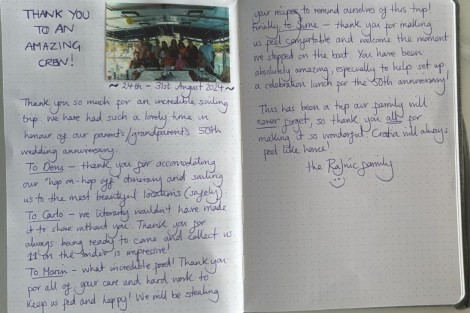 THANK YOU
TO AN
AMAZING
CREW!
~ 24th - 31st August 2024 ~
Thank you so much for an incredible sailing
trip. We have had such a lovely time in
honour of our parents/grandparents 50th
wedding anniversary.
To Deny - thank you for accomodating
our "hop on-hop off" itinerary and sailing
us to the most beautiful locations (safely).
To Carlo - we literally wouldn't have made
it to shore without you. Thank you for
always being ready to come and collect us.
11 on the tender is impressive!
To Marin - what incredible food! Thank you
for all of your care and hard work to
keep us fed and happy! We will be stealing
your recipes to remind ourselves of this trip!
Finally to - thank you for making
us feel comfortable and welcome the moment
we stepped on the boat. You have been
absolutely amazing, especially to help set up
a celebration lunch for the 50th anniversary!
This has been a trip our family will
never forget, so thank you all for
making it so wonderful. Croatia will always
feel like home!
the Rajnic family